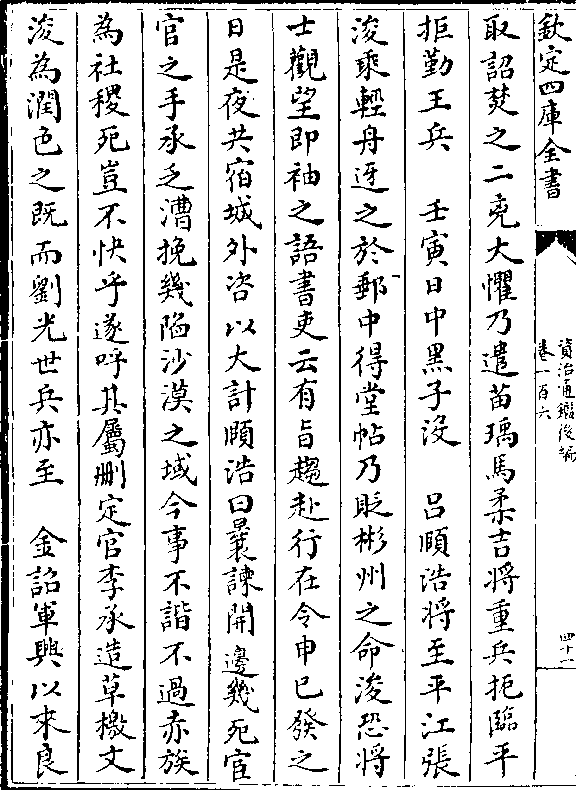 欽定四庫全書
資治通鑑後編
卷一百六
四十一
取詔焚之二兇大懼乃遣苗瑀馬柔吉將重兵扼臨平
拒勤王兵　壬寅日中黑子没　吕頤浩將至平江張
浚乘輕舟迓之於郵中得堂帖乃貶彬州之命浚恐將
士觀望即袖之語書吏云有旨趨赴行在令申已發之
日是夜共宿城外咨以大計頤浩曰曩諫開邊幾死宦
官之手承乏漕挽幾陷沙漠之域今事不諧不過赤族
為社稷死豈不快乎遂呼其屬删定官李承造草檄文
浚為潤色之既而劉光世兵亦至　金詔軍興以來良